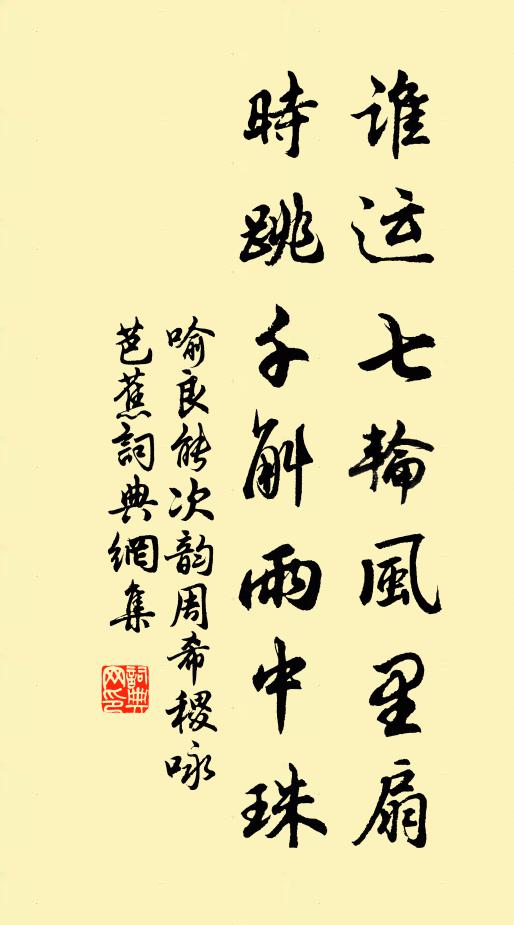 谁运七輪風里扇
時跳千斛雨中珠
喻良能次韵周希稷咏
芭蕉詞典網集
詞典
网印